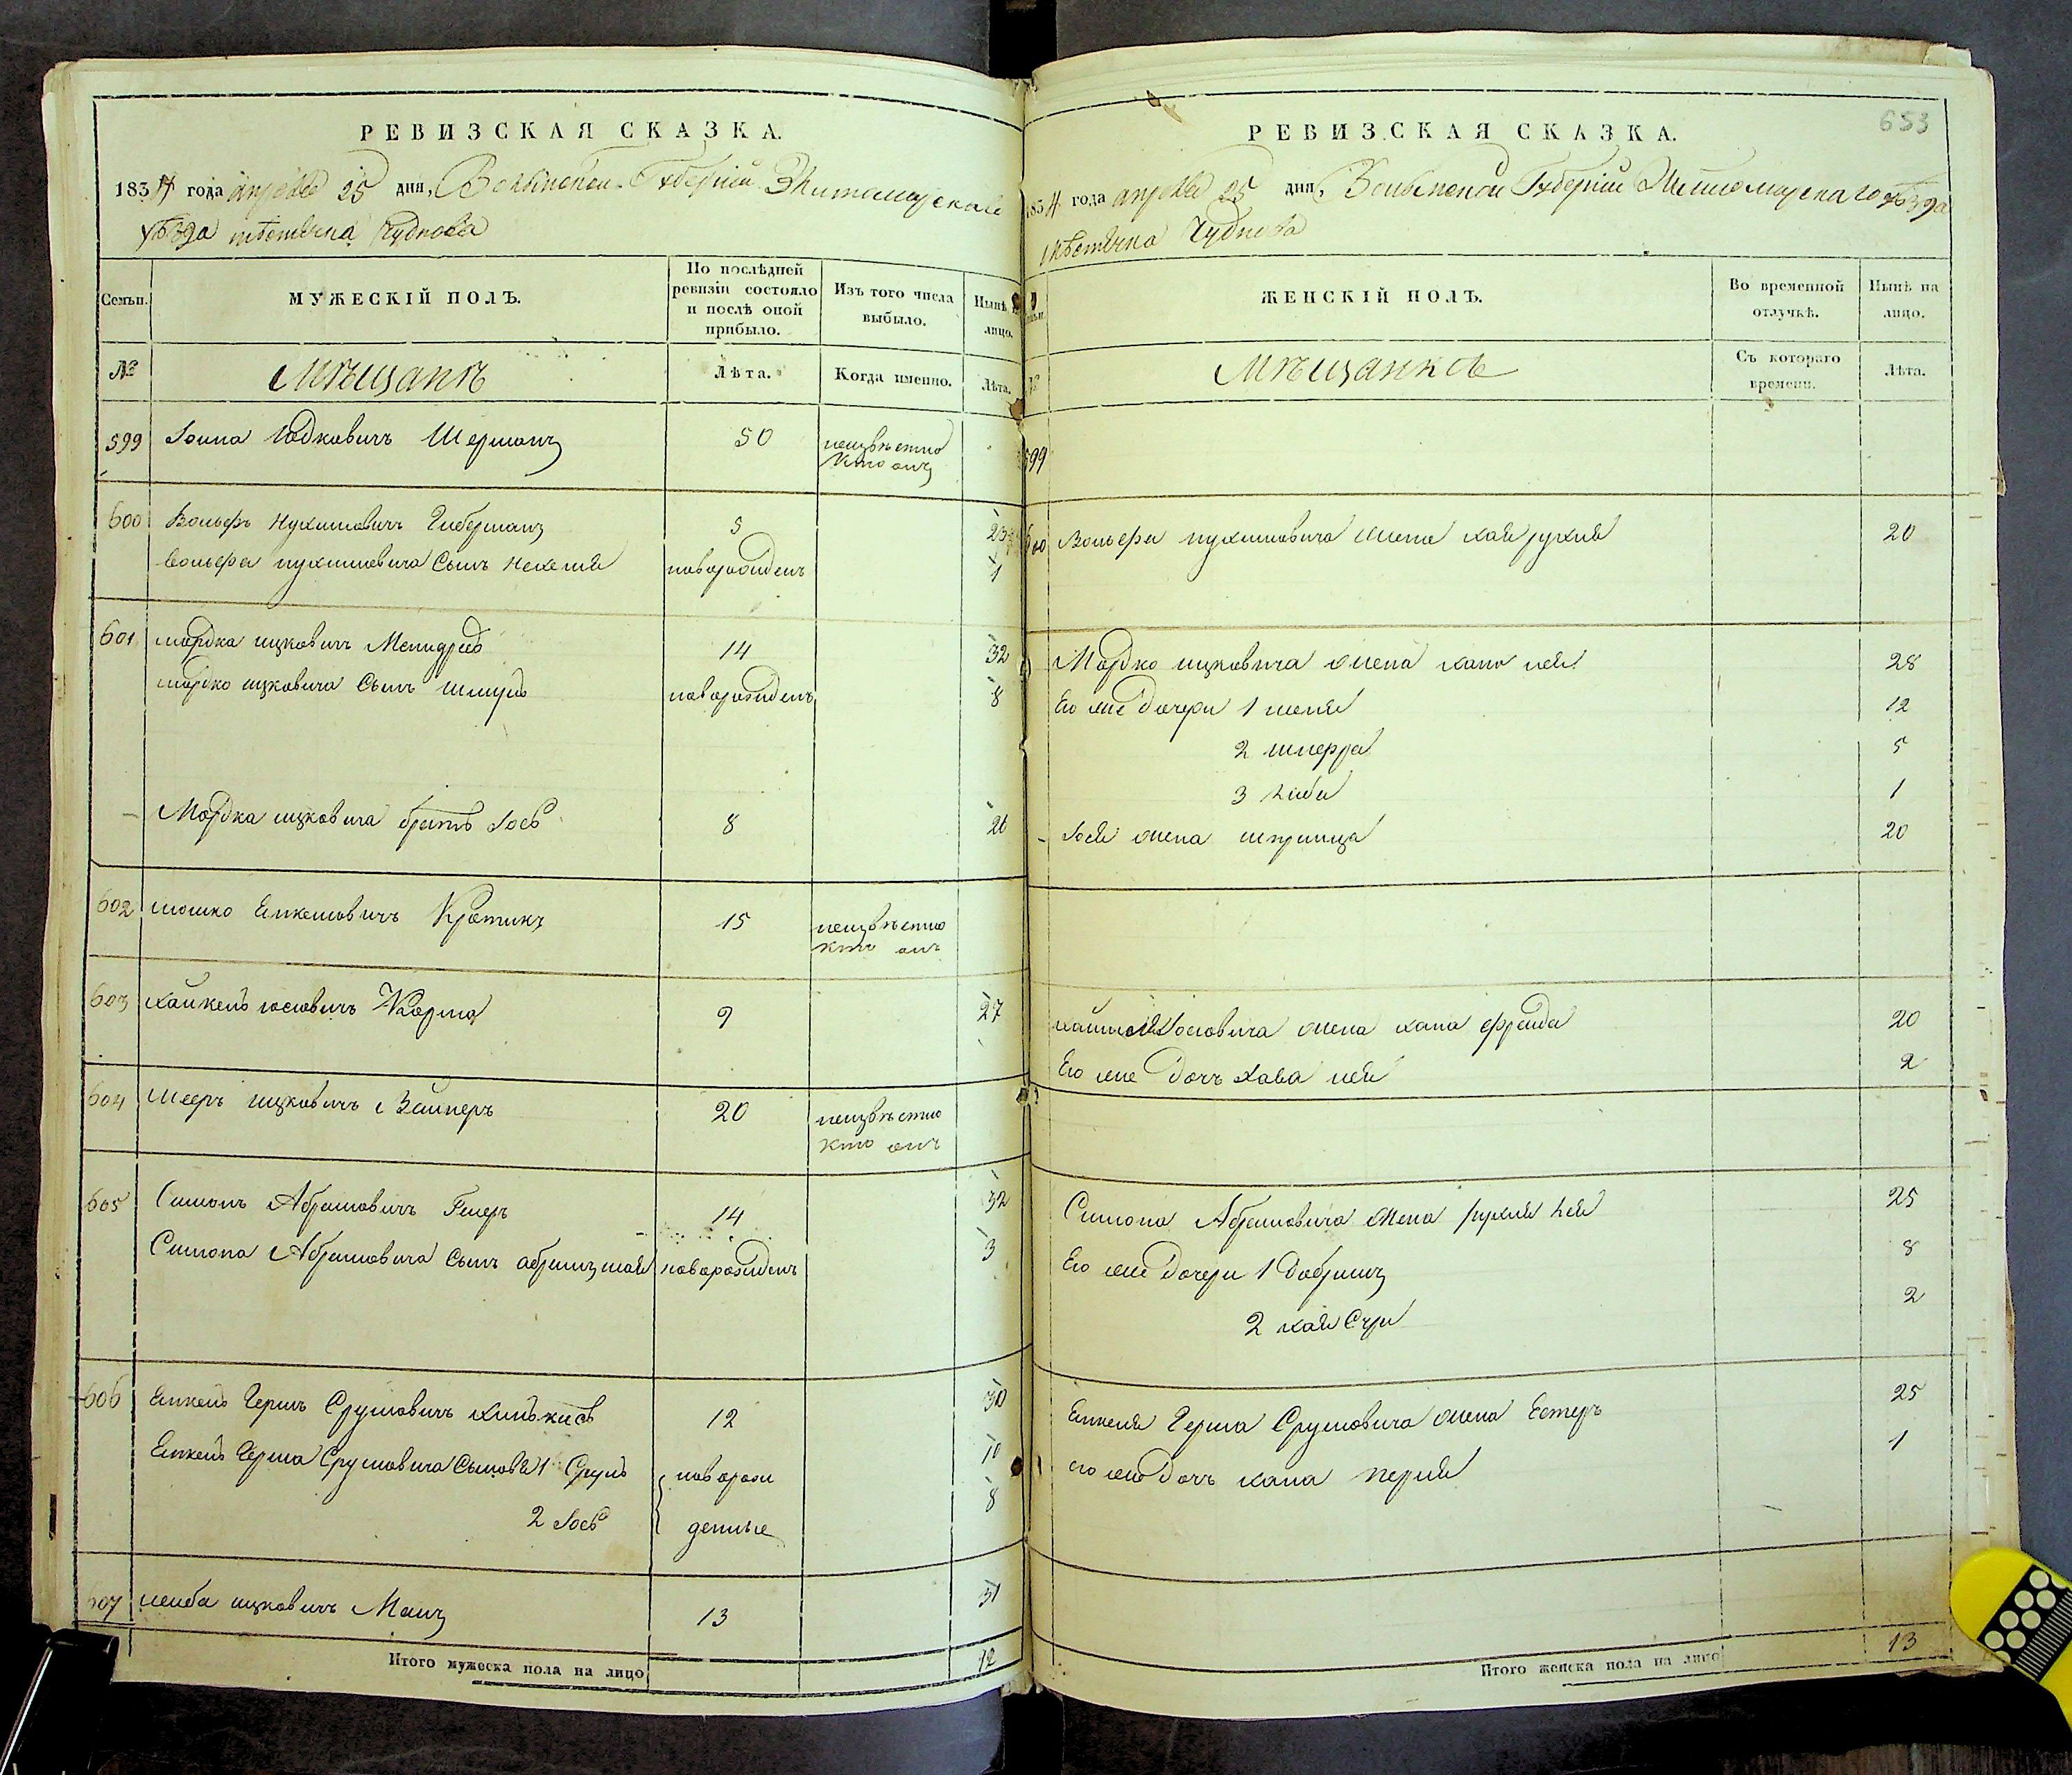 РЕВИЗСКАЯ СКАЗКА.
1834 года апреля 25 дня, Волынской Губернии Житомирскаго
уѣзда мѣстечка Чуднова
Семьи.
МУЖЕСКІЙ ПОЛЪ.
По послѣдней ревизіи состояло и послѣ оной прибыло.
Изъ того числа выбыло.
Нынѣ на лицо.
№
Мѣщанъ
Лѣта.
Когда именно.
Лѣта.
599 Іошна Юдковичъ Шерманъ 50 неизвѣстно
кто онъ
600 Вольфъ Нухимовичъ Гиберманъ 5 23
Вольфа Нухимовича сынъ Нехемія новорожденъ 1
601 Мордко Ицковичъ 14 32
Мордко Ицковича сынъ Шмуль новорожденъ 8
Мордка Ицковича братъ Іось 8 26
602 Мошко Янкелевичъ Кротикъ 15 неизвѣстно
кто онъ
603 Хаикель Іосіовичъ 9 27
604 Мееръ Ицковичъ Вайнеръ 20 неизвѣстно
кто онъ
605 Симонъ Абрамовичъ 14 32
Симона Абрамовича сынъ новорожденъ 3
606 Янкель Гершъ Срулювичъ 12 30
Янкель Герша Срулювича сыновья 1 Сруль новорож 10
2 Іось денные 8
607 Лейба Ицковичъ Манъ 13 31
Итого мужеска пола на лицо 12
653
РЕВИЗСКАЯ СКАЗКА.
1834 года апреля 25 дня, Волынской Губерніи Житомирскаго уѣзда
мѣстечка Чуднова
ЖЕНСКІЙ ПОЛЪ.
Во временной отлучкѣ.
Нынѣ на лицо.
№
Мѣщанкѣ
Съ котораго времени.
Лѣта.
599
600 Вольфа Нухимовича жена Хая Рухля 20
Мордко Ицковича жена Хана Лея 28
Его же дочери 1 12
2 5
3 1
Іося жена Шпринца 20
Іосіовича жена Хана Фрейда 20
Его же дочь Хава Лея 2
Симона Абрамовича жена Рухля Лея 25
Его же дочери 1 Добришъ 8
2 Хая Сура 2
Янкеля Герша Срулювича жена Естеръ 25
его же дочь Хана Перля 1
Итого женска пола на лицо 13